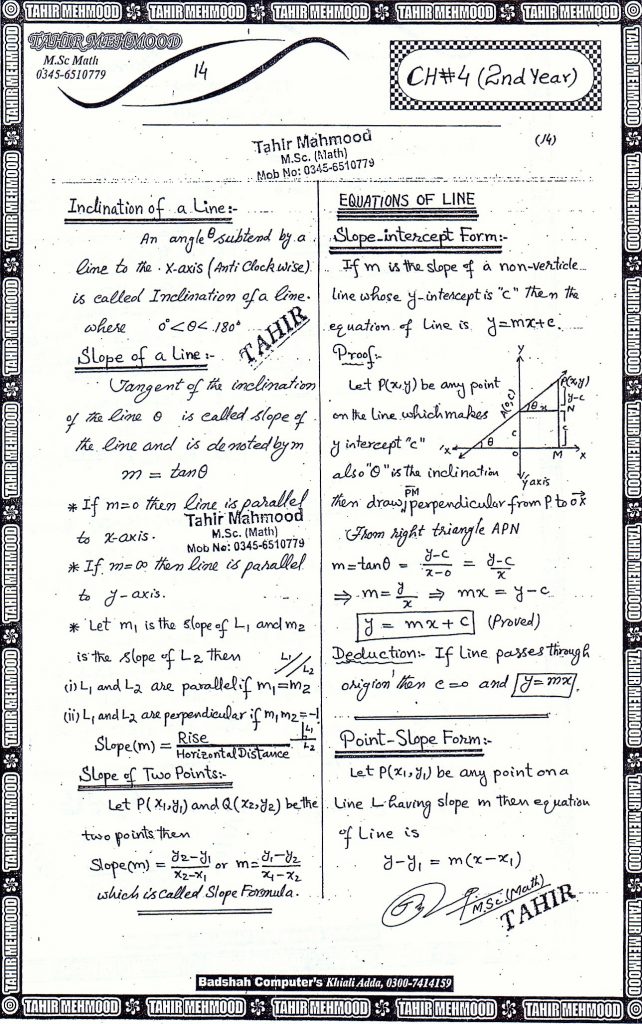 TAHIR MEHMOOD TAHIR MEHMOOD TAHIR MEHMOOD TAHIR MEHMOOD TAHIR MEHMOOD
TAHIR MEHMOOD
M.Sc Math
0345-6510779
14
CH#4 (2nd Year)
Tahir Mahmood
M.Sc. (Math)
Mob No: 0345-6510779
(14)
Inclination of a Line:-
An angle θ subtend by a
line to the x-axis (Anti Clock wise)
is called Inclination of a line.
where 0° < θ < 180°
TAHIR
Slope of a Line:-
Tangent of the inclination
of the line θ is called slope of
the line and is denoted by m
m = tanθ
* If m=0 then line is parallel
to x-axis.
Tahir Mahmood
M.Sc. (Math)
Mob No: 0345-6510779
* If m=∞ then line is parallel
to y-axis.
* Let m₁ is the slope of L₁ and m₂
is the slope of L₂ then
L₁ L₂
(i) L₁ and L₂ are parallel if m₁=m₂
(ii) L₁ and L₂ are perpendicular if m₁m₂=-1
L₁
L₂
Slope(m) = Rise / Horizontal Distance
Slope of Two Points:-
Let P(x₁,y₁) and Q(x₂,y₂) be the
two points then
Slope(m) = y₂-y₁ / x₂-x₁ or m = y₁-y₂ / x₁-x₂
which is called Slope Formula.
EQUATIONS OF LINE
Slope-intercept Form:-
If m is the slope of a non-verticle
line whose y-intercept is "c" then the
equation of Line is y=mx+c.
Proof:-
Let P(x,y) be any point
on the line which makes
y intercept "c"
also "θ" is the inclination
then draw PM perpendicular from P to ox
y
P(x,y)
A(0,c)
y-c
θ x N
c c
x' θ O M x
y'axis
From right triangle APN
m=tanθ = y-c / x-0 = y-c / x
⇒ m = y / x ⇒ mx = y-c
y = mx+c (Proved)
Deduction:- If Line passes through
origion then c=0 and y=mx.
Point-Slope Form:-
Let P(x₁,y₁) be any point on a
Line L having slope m then equation
of Line is
y-y₁ = m(x-x₁)
M.Sc.(Math)
TAHIR
Badshah Computer's Khiali Adda, 0300-7414159
TAHIR MEHMOOD TAHIR MEHMOOD TAHIR MEHMOOD TAHIR MEHMOOD TAHIR MEHMOOD